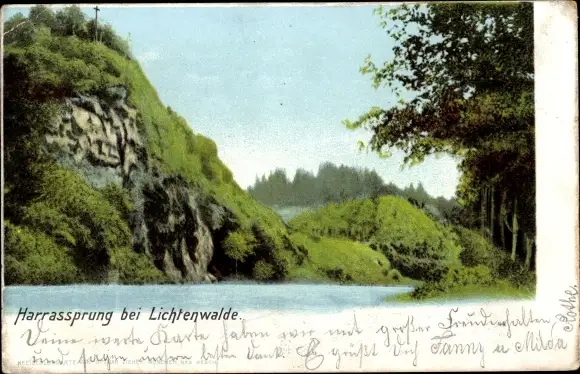 Harrassprung bei Lichtenwalde.
Deine werte Karte haben wir mit großer Freude erhalten,
und sagen unsern besten Dank. Es grüßt dich Fanny u Milda
Rothe.